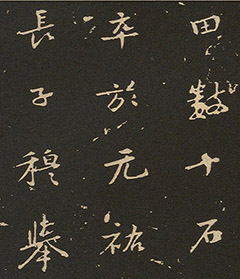 田數十石
卒於元祐
長子穆舉